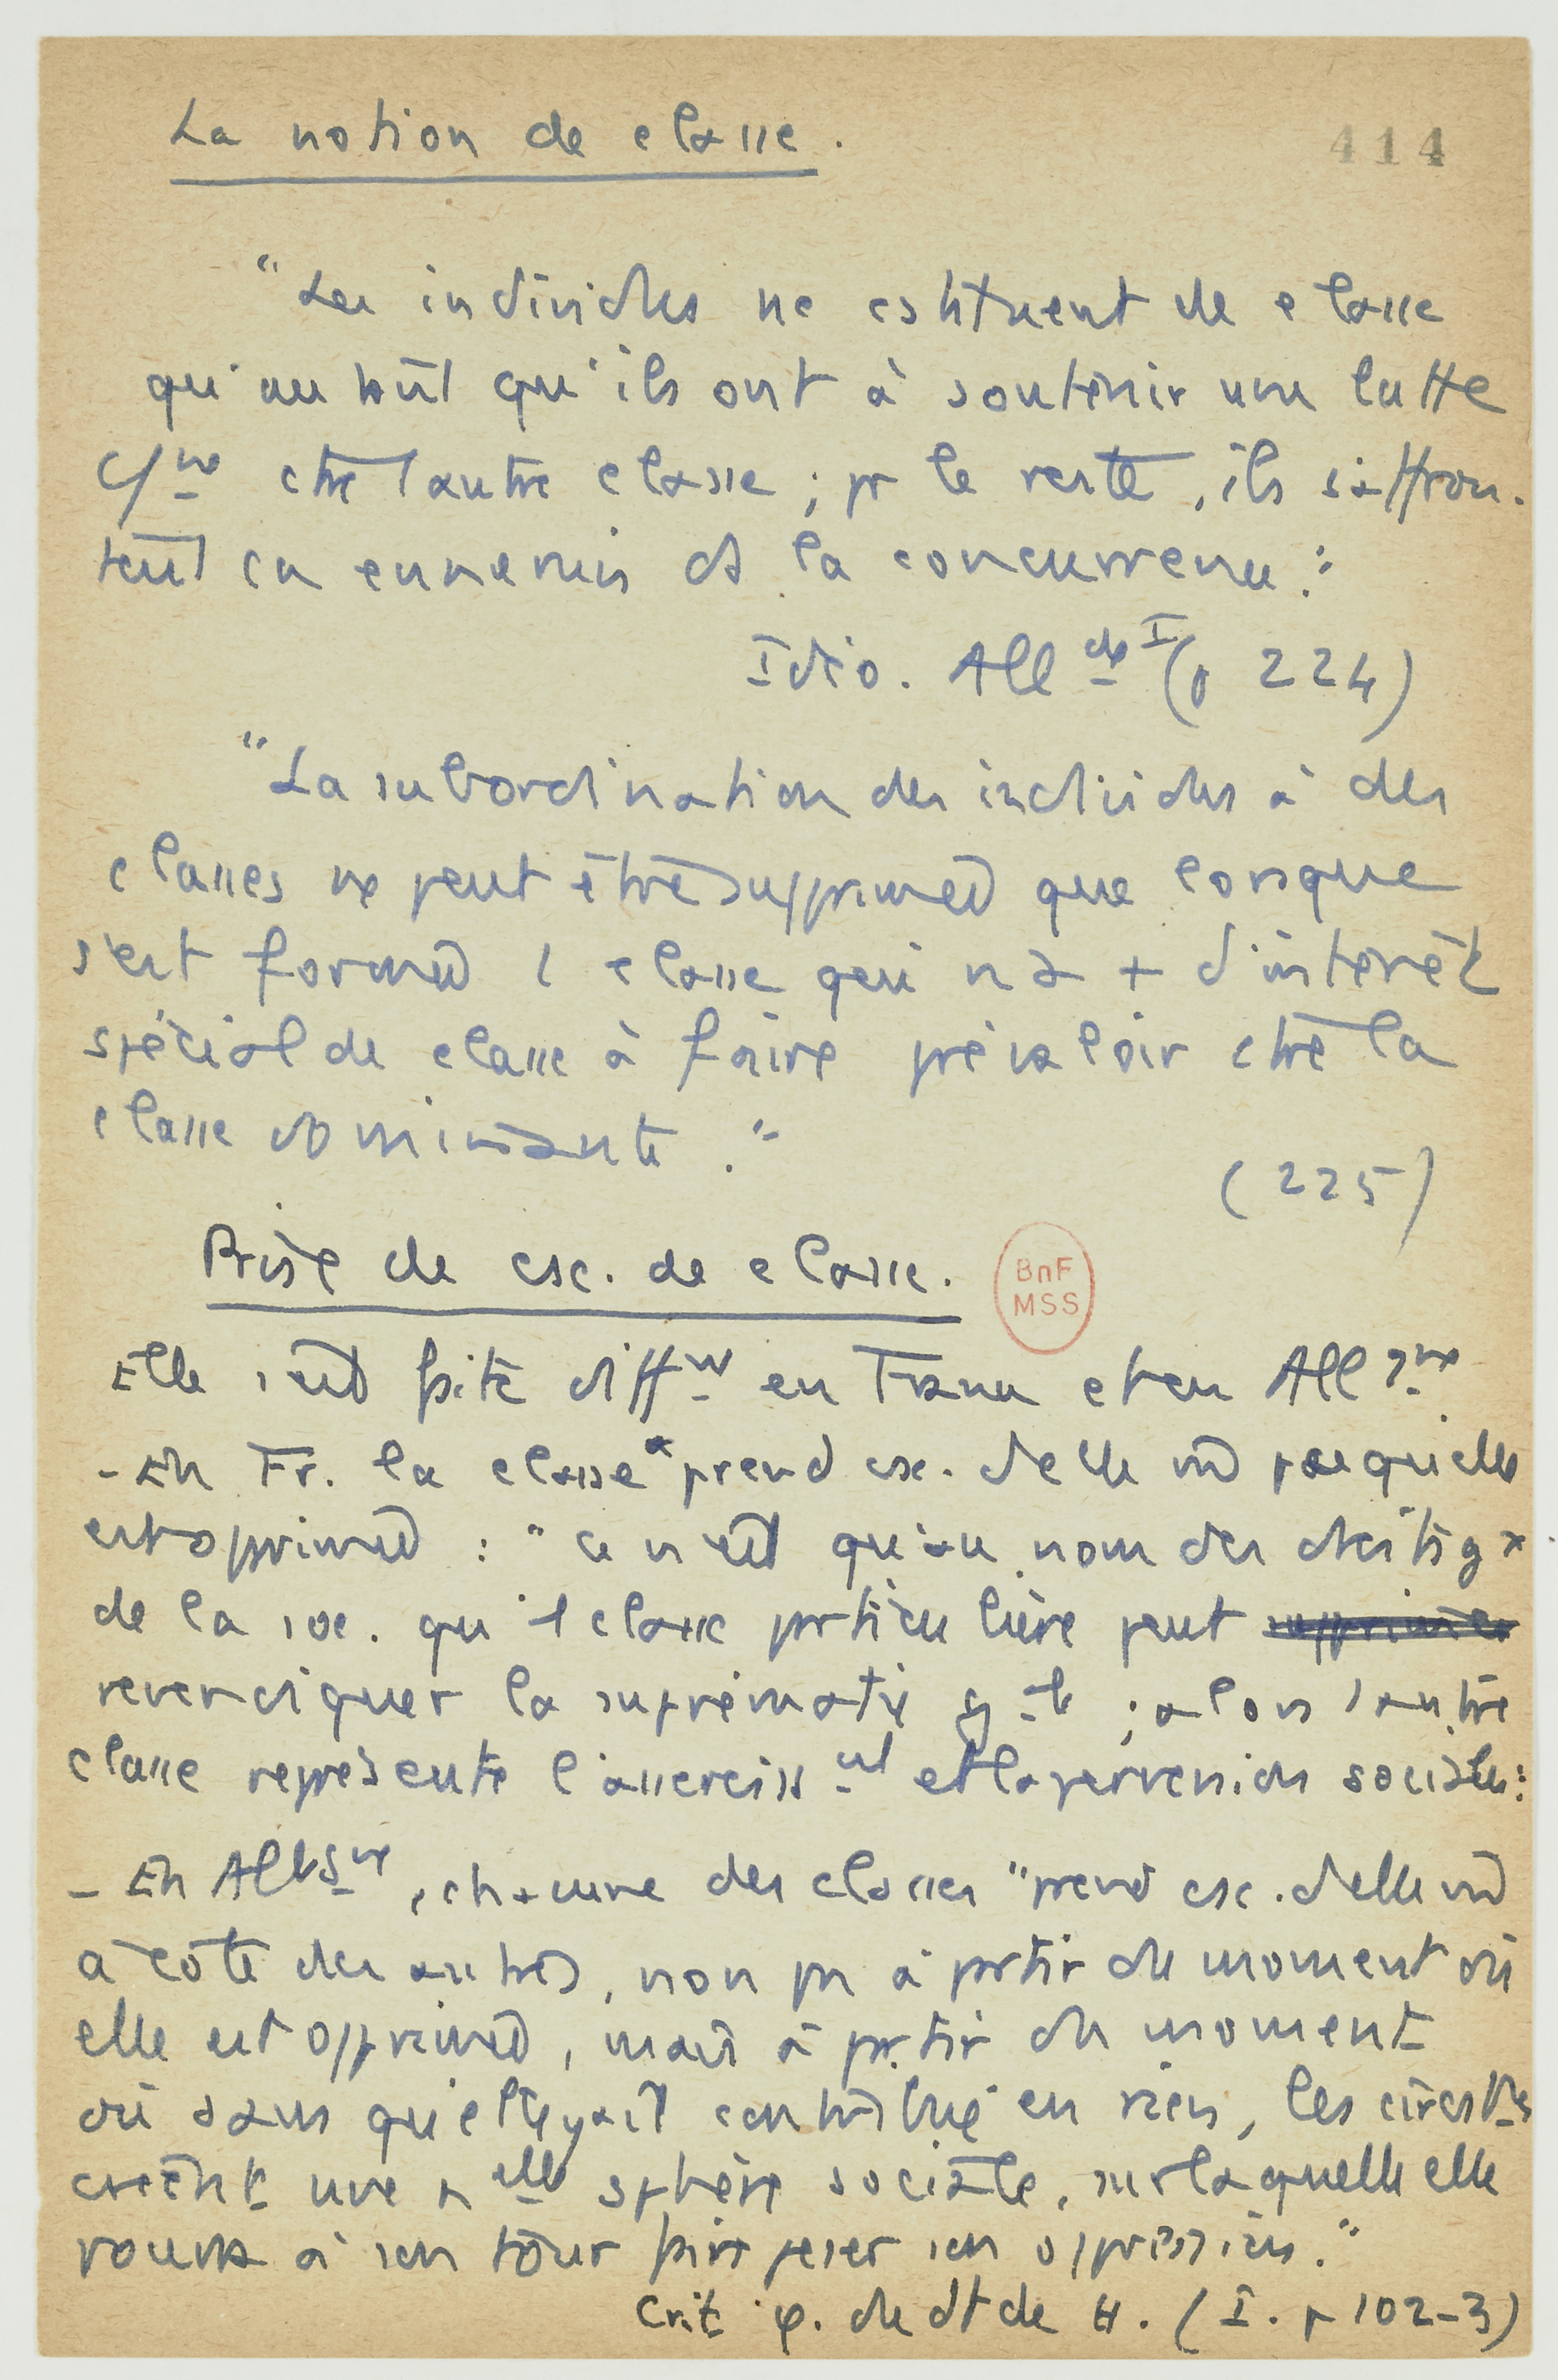 La notion de classe.
414
"Les individus ne cstituent de classe
qu'autant qu'ils ont à soutenir une lutte
c/ne ctre 1 autre classe ; pr le reste, ils s'affron-
tent en ennemis ds la concurrence."
Idéo. Allde I (p 224)
"La subordination des individus à des
classes ne peut être supprimée que lorsque
s'est formée 1 classe qui n'a + d'intérêt
spécial de classe à faire prévaloir ctre la
classe dominante."
(225)
Prise de csc. de classe.
BnF
MSS
Elle s'est faite difft en France et en Allgne
- En Fr. la classe prend csc. d'elle m̂ parce qu'elle
est opprimée : "ce n'est qu'au nom des dts
de la soc. qu'1 classe particulière peut supprimer
revendiquer la suprématie gale ; alors 1 autre
classe représente l'asservisst et la perversion sociales."
- En Allgne, chacune des classes "prend csc. d'elle m̂
à côté des autres, non pas à partir du moment où
elle est opprimée, mais à partir du moment
où sans qu'elle y ait contribué en rien, les circstces
créent une nelle sphère sociale, sur laquelle elle
pourra à son tour faire peser son oppression."
Crit φ. du dt de H. (I. p 102-3)